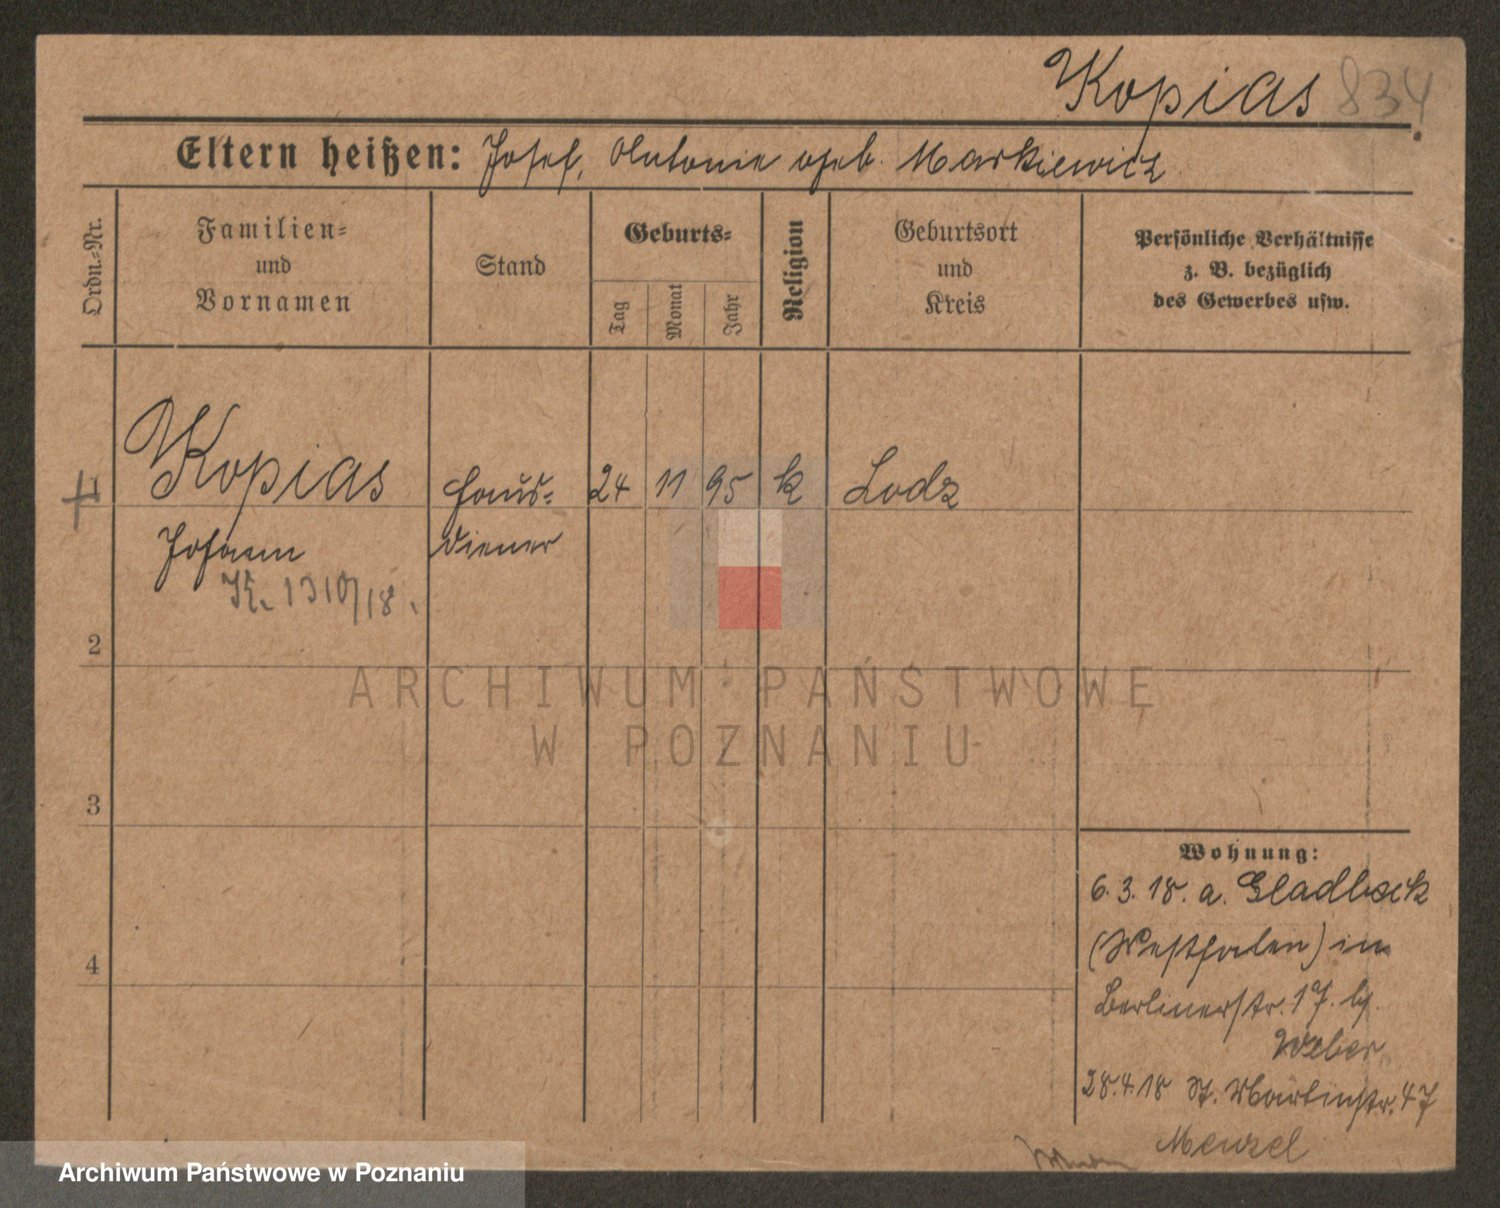 Kopias 834
Eltern heißen: Josef, Antonie geb. Markiewicz
Ordn.-Nr.
Familien-
und
Vornamen
Stand
Geburts-
Tag
Monat
Jahr
Religion
Geburtsort
und
Kreis
Persönliche Verhältnisse
z. B. bezüglich
des Gewerbes usw.
1 Kopias Haus- 24 11 95 k Lodz
Johann diener
K. 1310/18.
2
ARCHIWUM PAŃSTWOWE
W POZNANIU
3
Wohnung:
6.3.18. a. Gladbeck
(Westfalen) in
4
Berlinerstr. 17. bj.
Weber
28.4.18 St. Martinstr. 47
Menzel
Archiwum Państwowe w Poznaniu